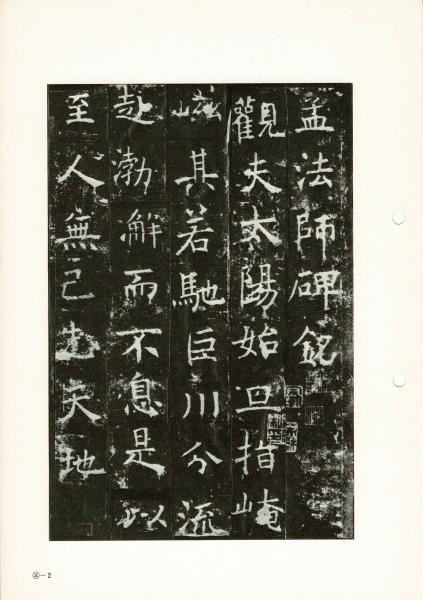 孟法師碑銘
觀夫太陽始旦指崦
嵫其若馳巨川分流
赴渤澥而不息是以
至人無己先天地